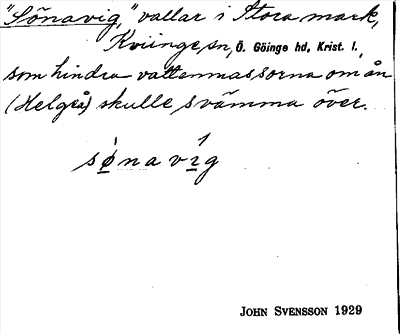 "Sönavig," vallar i Stora mark,
Kviinge sn, Ö. Göinge hd, Krist. l.,
som hindra vattenmassorna om ån
(Helgeå) skulle svämma över.
sønavıg
JOHN SVENSSON 1929